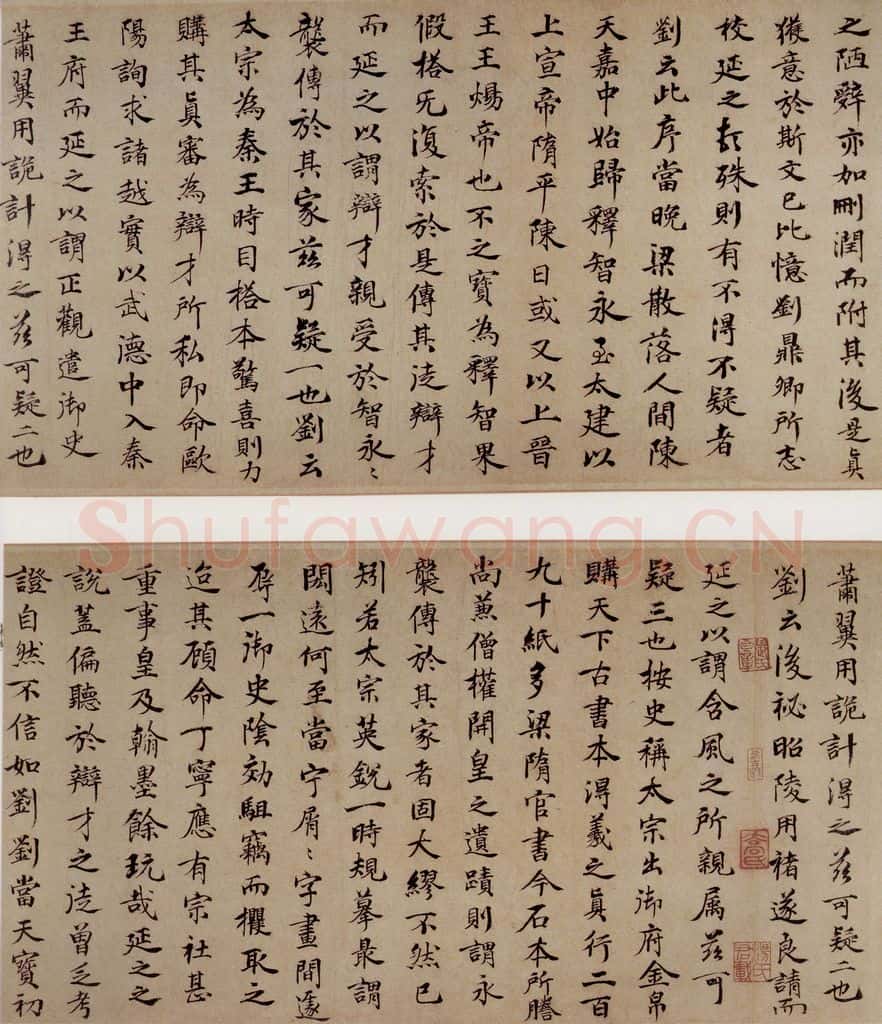 之陋辭亦加刪潤而附其後是真
獲意於斯文已比憶劉鼎卿所志
校延之尤殊則有不得不疑者
劉云此序當晚梁散落人間陳
天嘉中始歸釋智永至太建以
上宣帝隋平陳日或又以上晉
王王煬帝也不之寶為釋智果
假榻旡復索於是傳其徒辯才
而延之以謂辯才親受於智永〻
襲傳於其家茲可疑一也劉云
太宗為秦王時目榻本驚喜則力
購其真審為辯才所私即命歐
陽詢求諸越實以武德中入秦
王府而延之以謂正觀遣御史
蕭翼用詭計得之茲可疑二也
Shufawang.CN
蕭翼用詭計得之茲可疑二也
劉云後祕昭陵用褚遂良請而
延之以謂含風之所親属茲可
疑三也按史稱太宗出御府金帛
購天下古書本得羲之真行二百
九十紙多梁隋官書今石本所謄
尚蒹僧權開皇之遺蹟則謂永
襲傳於其家者固大繆不然已
矧若太宗英銳一時規摹最謂
閎遠何至當宁屑〻字畫間遽
辱一御史陰効駔竊而攫取之
迨其顧命丁寧應有宗社甚
重事皇及翰墨餘玩哉延之之
說蓋偏聽於辯才之徒曾乏考
證自然不信如劉劉當天寶初